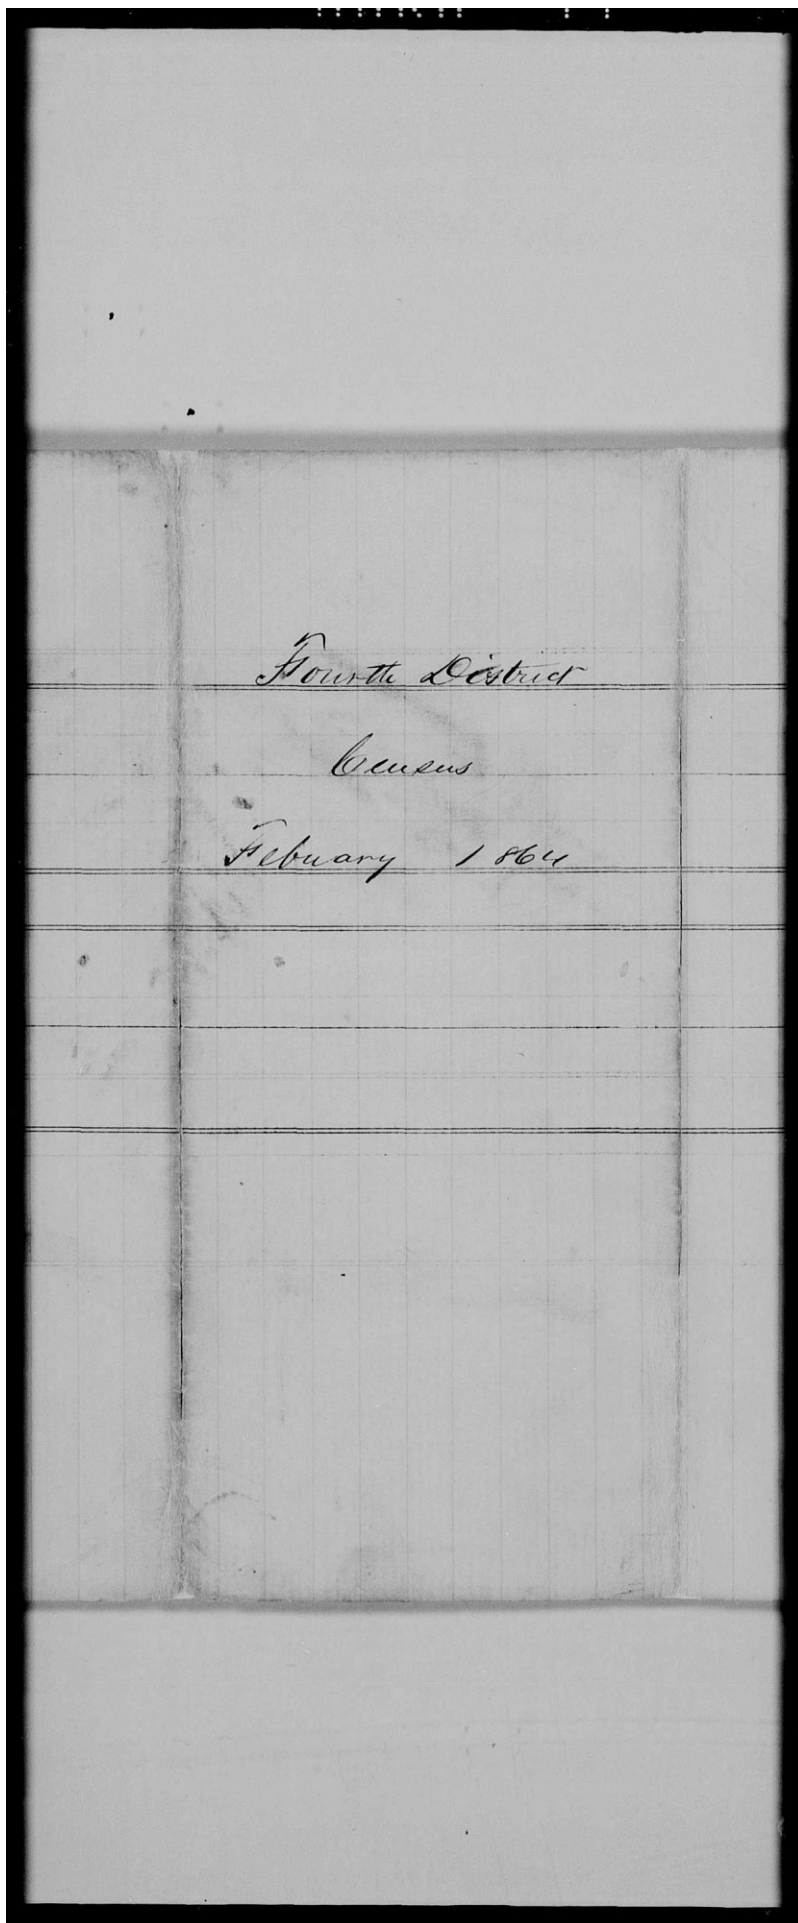 Fourth District
Census
Febuary 1864